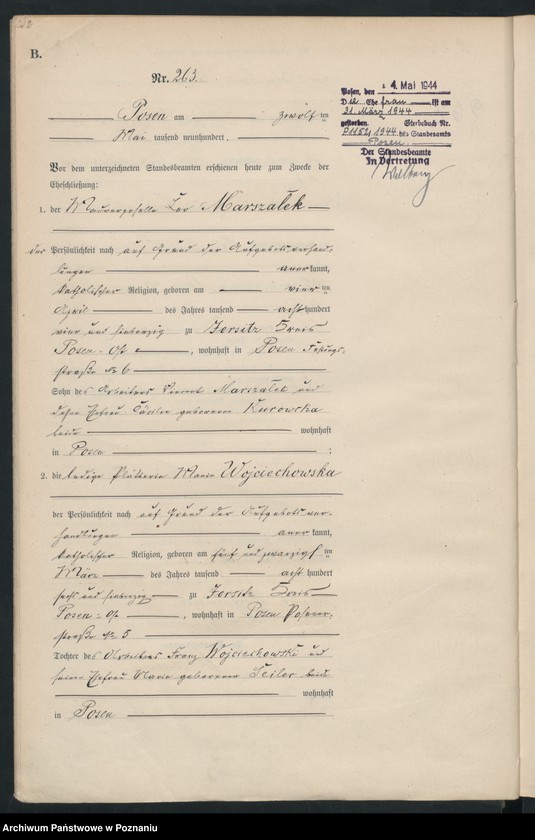 B.
Nr. 263.
Posen am zwölften
Mai tausend neunhundert
Vor dem unterzeichneten Standesbeamten erschienen heute zum Zwecke der
Eheschließung:
1. der Maurergeselle Marszałek
der Persönlichkeit nach auf Grund der Aufgebotsverhand-
lungen anerkannt,
katholischer Religion, geboren am vierten
April des Jahres tausend achthundert
vier und siebenzig zu Jersitz Kreis
Posen-Ost, wohnhaft in Posen Festungs-
straße № 6
Sohn des Arbeiters Marszałek und
dessen Ehefrau geborenen Kurowska
beide wohnhaft
in Posen;
2. die ledige Plätterin Maria Wojciechowska
der Persönlichkeit nach auf Grund der Aufgebotsver-
handlungen anerkannt,
katholischer Religion, geboren am fünf und zwanzigsten
März des Jahres tausend achthundert
sechs und siebenzig zu Jersitz Kreis
Posen-Ost, wohnhaft in Posen
straße № 5
Tochter des Arbeiters Franz Wojciechowski und
seiner Ehefrau Marie geborenen beide
wohnhaft
in Posen
Posen, den 4. Mai 1944
Die Ehefrau ist am
31. März 1944
gestorben. Sterbebuch Nr.
1944 des Standesamts
Posen.
Der Standesbeamte
In Vertretung
Archiwum Państwowe w Poznaniu